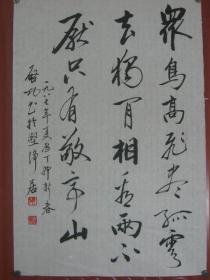 眾鳥高飛盡孤雲
去獨閒相看兩不
厭只有敬亭山
一九八七年夏曆丁卯新春
啟功書於堅淨居